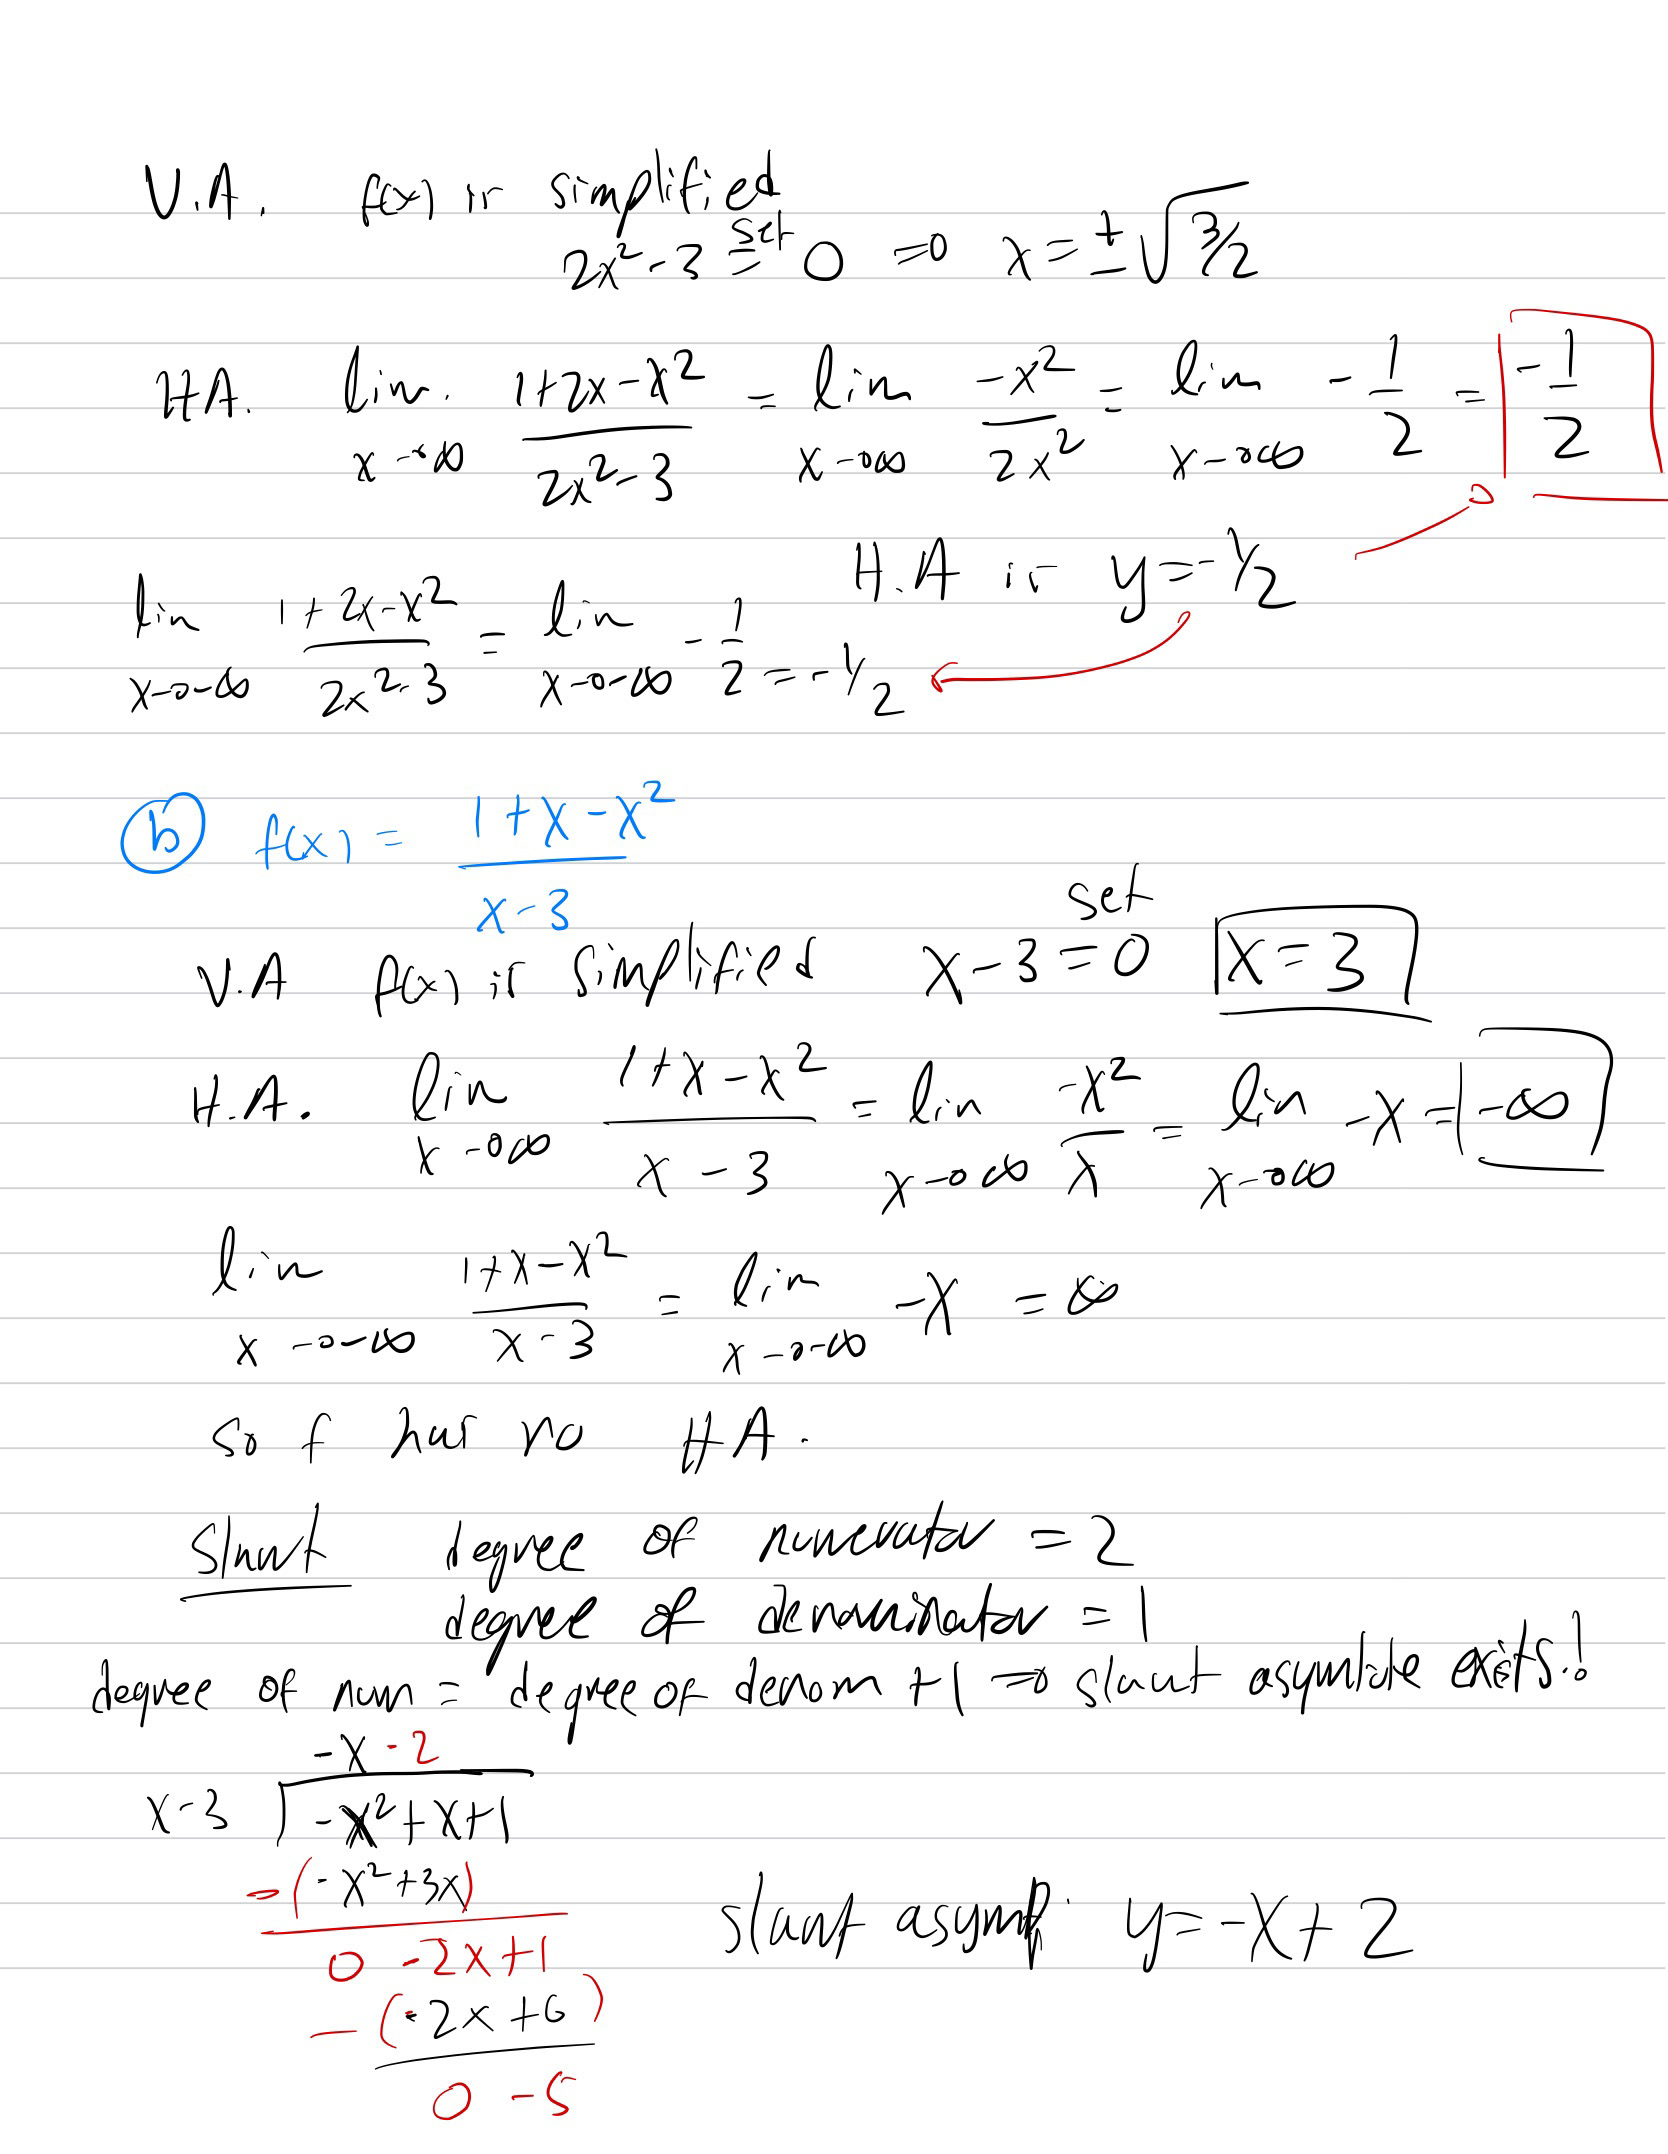 V.A. f(x) is simplified
2x²-3 set= 0 ⇒ x = ±√3/2
HA. lim x→∞ (1+2x-x²)/(2x²-3) = lim x→∞ -x²/2x² = lim x→∞ -1/2 = -1/2
H.A is y=-1/2
lim x→-∞ (1+2x-x²)/(2x²-3) = lim x→-∞ -1/2 = -1/2
(b) f(x) = (1+x-x²)/(x-3)
V.A f(x) is simplified x-3 set= 0 x=3
H.A. lim x→∞ (1+x-x²)/(x-3) = lim x→∞ -x²/x = lim x→∞ -x = -∞
lim x→-∞ (1+x-x²)/(x-3) = lim x→-∞ -x = ∞
so f has no HA.
Slant degree of numerator = 2
degree of denominator = 1
degree of num = degree of denom +1 ⇒ slant asymtote exists!
-x-2
x-3 ) -x²+x+1
-(-x²+3x)
0 -2x+1
slant asymp: y=-x+2
-(-2x+6)
0 -5